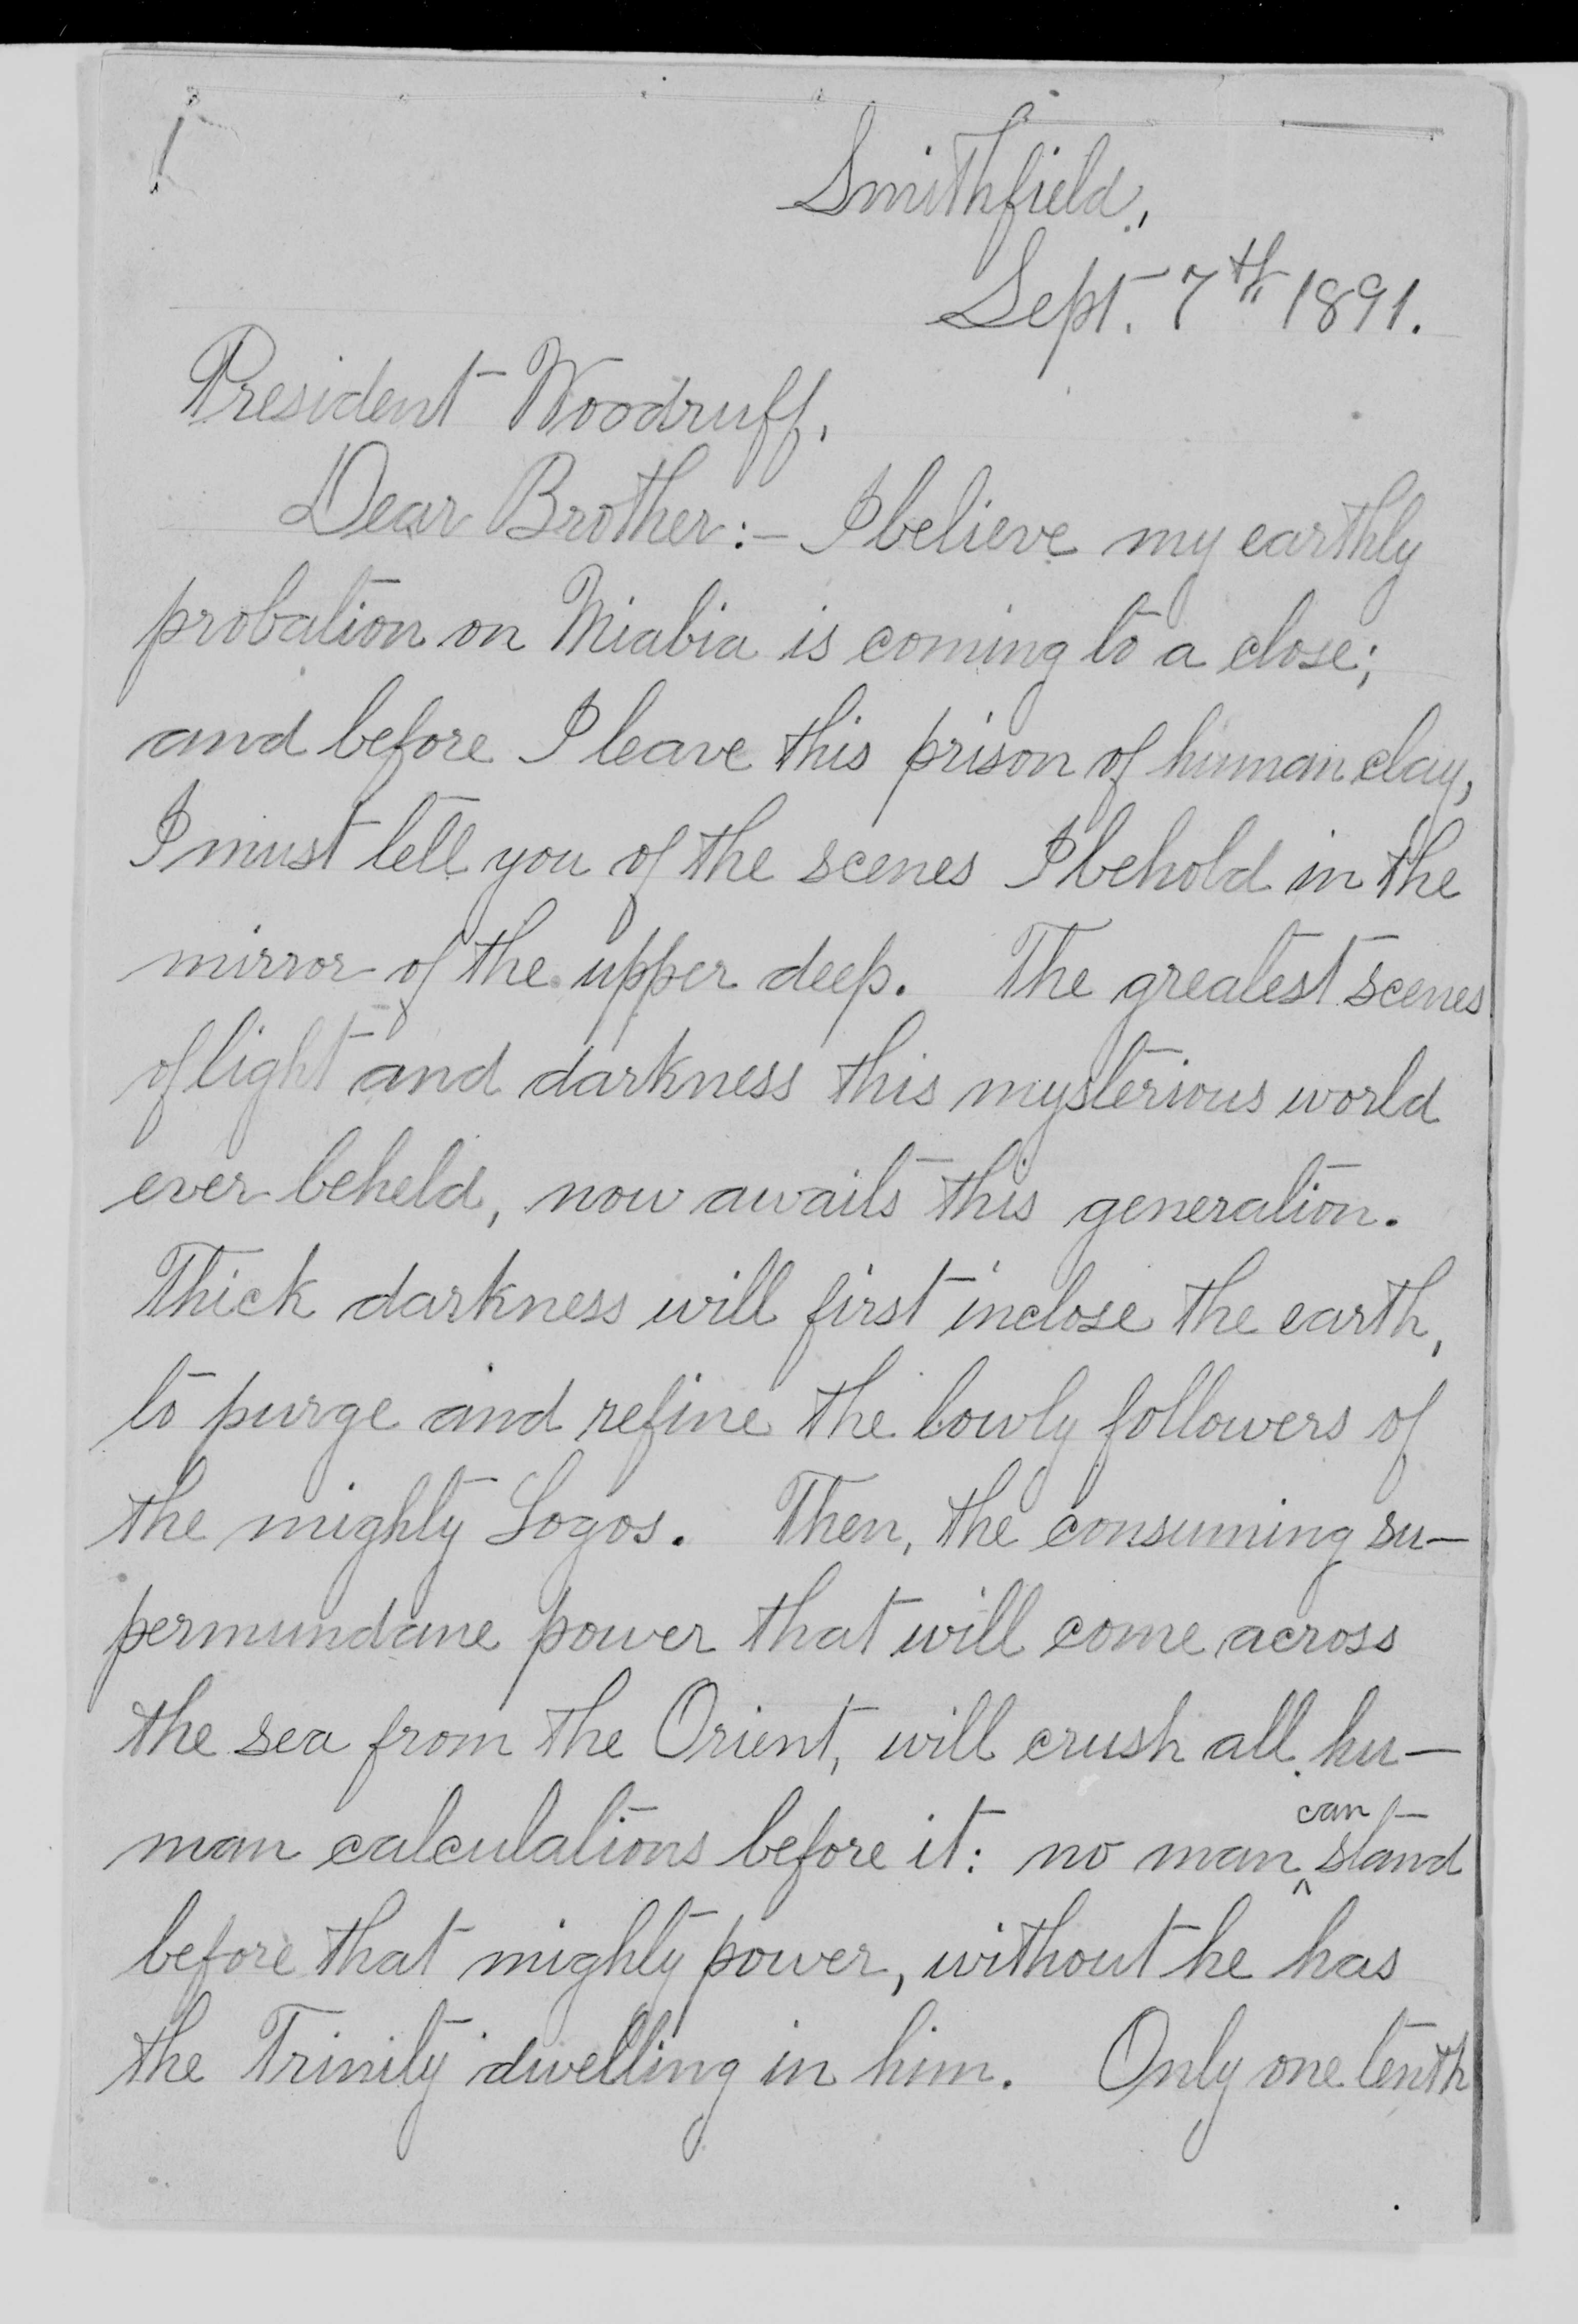 Smithfield,
Sept. 7th 1891.
President Woodruff,
Dear Brother:— I believe my earthly
probation on Miabia is coming to a close;
and before I leave this prison of human clay,
I must tell you of the scenes I behold in the
mirror of the upper deep. The greatest scenes
of light and darkness this mysterious world
ever beheld, now awaits this generation.
Thick darkness will first inclose the earth,
to purge and refine the lowly followers of
the mighty Logos. Then, the consuming su—
permundane power that will come across
the sea from the Orient, will crush all hu—
man calculations before it: no man can stand
before that mighty power, without he has
the Trinity dwelling in him. Only one tenth